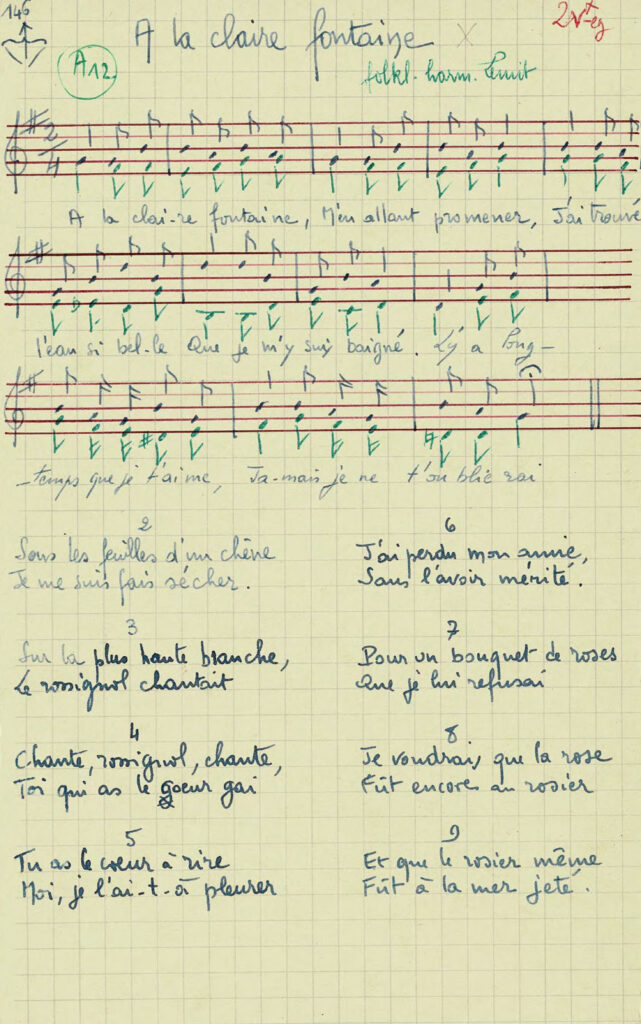 146
A la claire fontaine X
A12.
folkl. harm.
2
4
A la clai-re fontaine, M'en allant promener, J'ai trouvé
l'eau si bel-le Que je m'y suis baigné. Ly' a long-
-temps que je t'aime, Ja-mais je ne t'ou blie rai
2
Sous les feuilles d'un chêne
Je me suis fais sécher.
3
Sur la plus haute branche,
Le rossignol chantait
4
Chante, rossignol, chante,
Toi qui as le coeur gai
5
Tu as le coeur à rire
Moi, je l'ai-t-à pleurer
6
J'ai perdu mon amie,
Sans l'avoir mérité.
7
Pour un bouquet de roses
Que je lui refusai
8
Je voudrais que la rose
Fût encore au rosier
9
Et que le rosier même
Fût à la mer jeté.